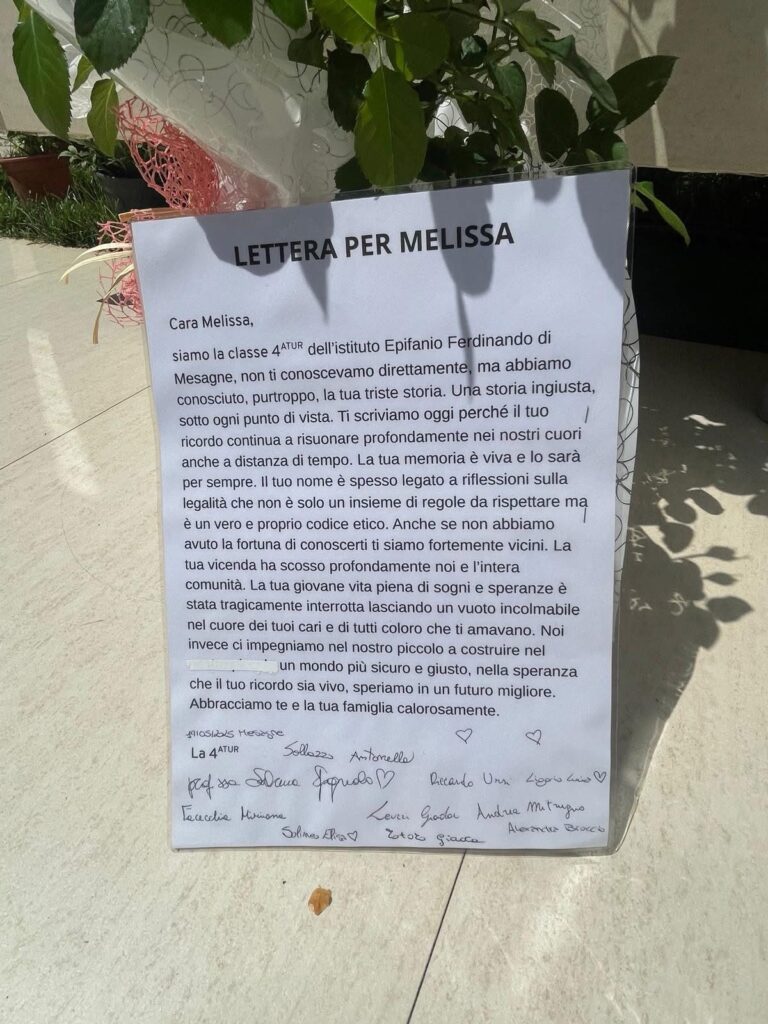 LETTERA PER MELISSA
Cara Melissa,
siamo la classe 4ATUR dell'istituto Epifanio Ferdinando di
Mesagne, non ti conoscevamo direttamente, ma abbiamo
conosciuto, purtroppo, la tua triste storia. Una storia ingiusta,
sotto ogni punto di vista. Ti scriviamo oggi perché il tuo
ricordo continua a risuonare profondamente nei nostri cuori
anche a distanza di tempo. La tua memoria è viva e lo sarà
per sempre. Il tuo nome è spesso legato a riflessioni sulla
legalità che non è solo un insieme di regole da rispettare ma
è un vero e proprio codice etico. Anche se non abbiamo
avuto la fortuna di conoscerti ti siamo fortemente vicini. La
tua vicenda ha scosso profondamente noi e l'intera
comunità. La tua giovane vita piena di sogni e speranze è
stata tragicamente interrotta lasciando un vuoto incolmabile
nel cuore dei tuoi cari e di tutti coloro che ti amavano. Noi
invece ci impegniamo nel nostro piccolo a costruire nel
un mondo più sicuro e giusto, nella speranza
che il tuo ricordo sia vivo, speriamo in un futuro migliore.
Abbracciamo te e la tua famiglia calorosamente.
Mesagne
La 4ATUR Sollazzo Antonella
prof.ssa Riccardo
Giada Andrea Mitrugno
Alexander